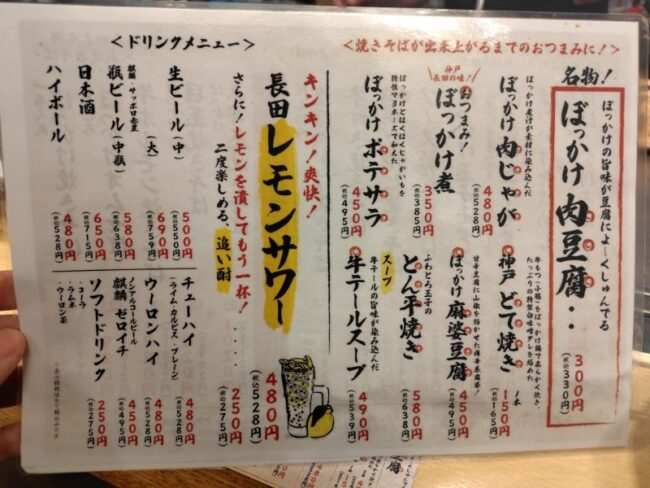 <焼きそばが出来上がるまでのおつまみに!>
名物!
ぼっかけの旨味が豆腐によ~くしゅんでる
ぼっかけ肉豆腐・・
300円
(税込330円)
ぼっかけ煮汁が素材に染み込んだ
ぼっかけ肉じゃが
480円
(税込528円)
牛もつ(小腸)をぼっかけ鍋で柔らかく炊き、
たっぷりの特製白味噌ダレを絡めた
神戸 どて焼き
1本
150円
(税込165円)
神戸長田の味!
おつまみ!
ぼっかけ煮
350円
(税込385円)
ぼっかけ麻婆豆腐
450円
(税込495円)
ぼっかけとほくほくじゃがいもを
特性マヨネーズで和えた
ぼっかけ ポテサラ
450円
(税込495円)
ふわとろ玉子の
とん平焼き
580円
(税込638円)
スープ
牛テールの旨味が染み込んだ
牛テールスープ
490円
(税込539円)
<ドリンクメニュー>
キンキン!爽快!
長田レモンサワー
480円
(税込528円)
さらに!レモンを潰してもう一杯!
二度楽しめる、追い酎
250円
(税込275円)
生ビール(中)
500円
(税込550円)
(大)
690円
(税込759円)
麒麟・サッポロ赤星
瓶ビール(中瓶)
580円
(税込638円)
日本酒
650円
(税込715円)
ハイボール
480円
(税込528円)
チューハイ
(ライム・カルピス・プレーン)
480円
(税込528円)
ウーロンハイ
480円
(税込528円)
ノンアルコールビール
麒麟 ゼロイチ
450円
(税込495円)
ソフトドリンク
・コーラ
・ラムネ
・ウーロン茶
250円
(税込275円)